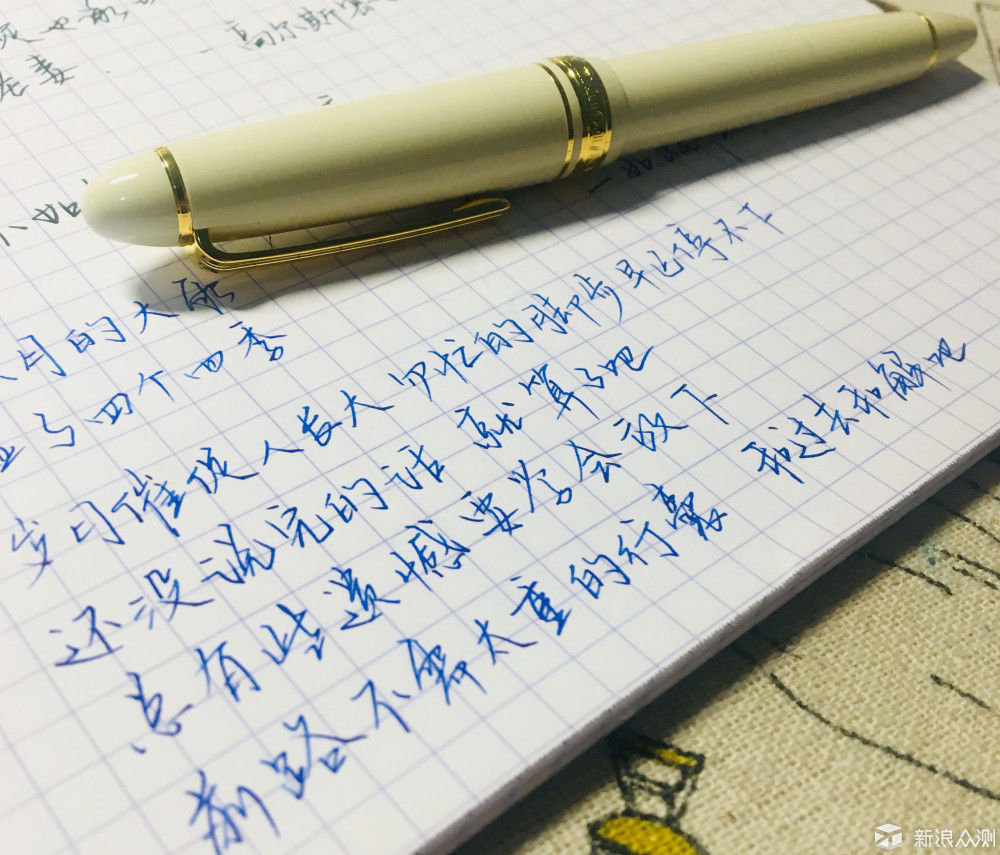 高尔斯
月的大
与四个四季
岁月催促人长大 匆忙的脚步早已停不下
还没说完的话 就算了吧
总有些遗憾要学会放下
前路不需太重的行囊 和过去和解吧
新浪众测